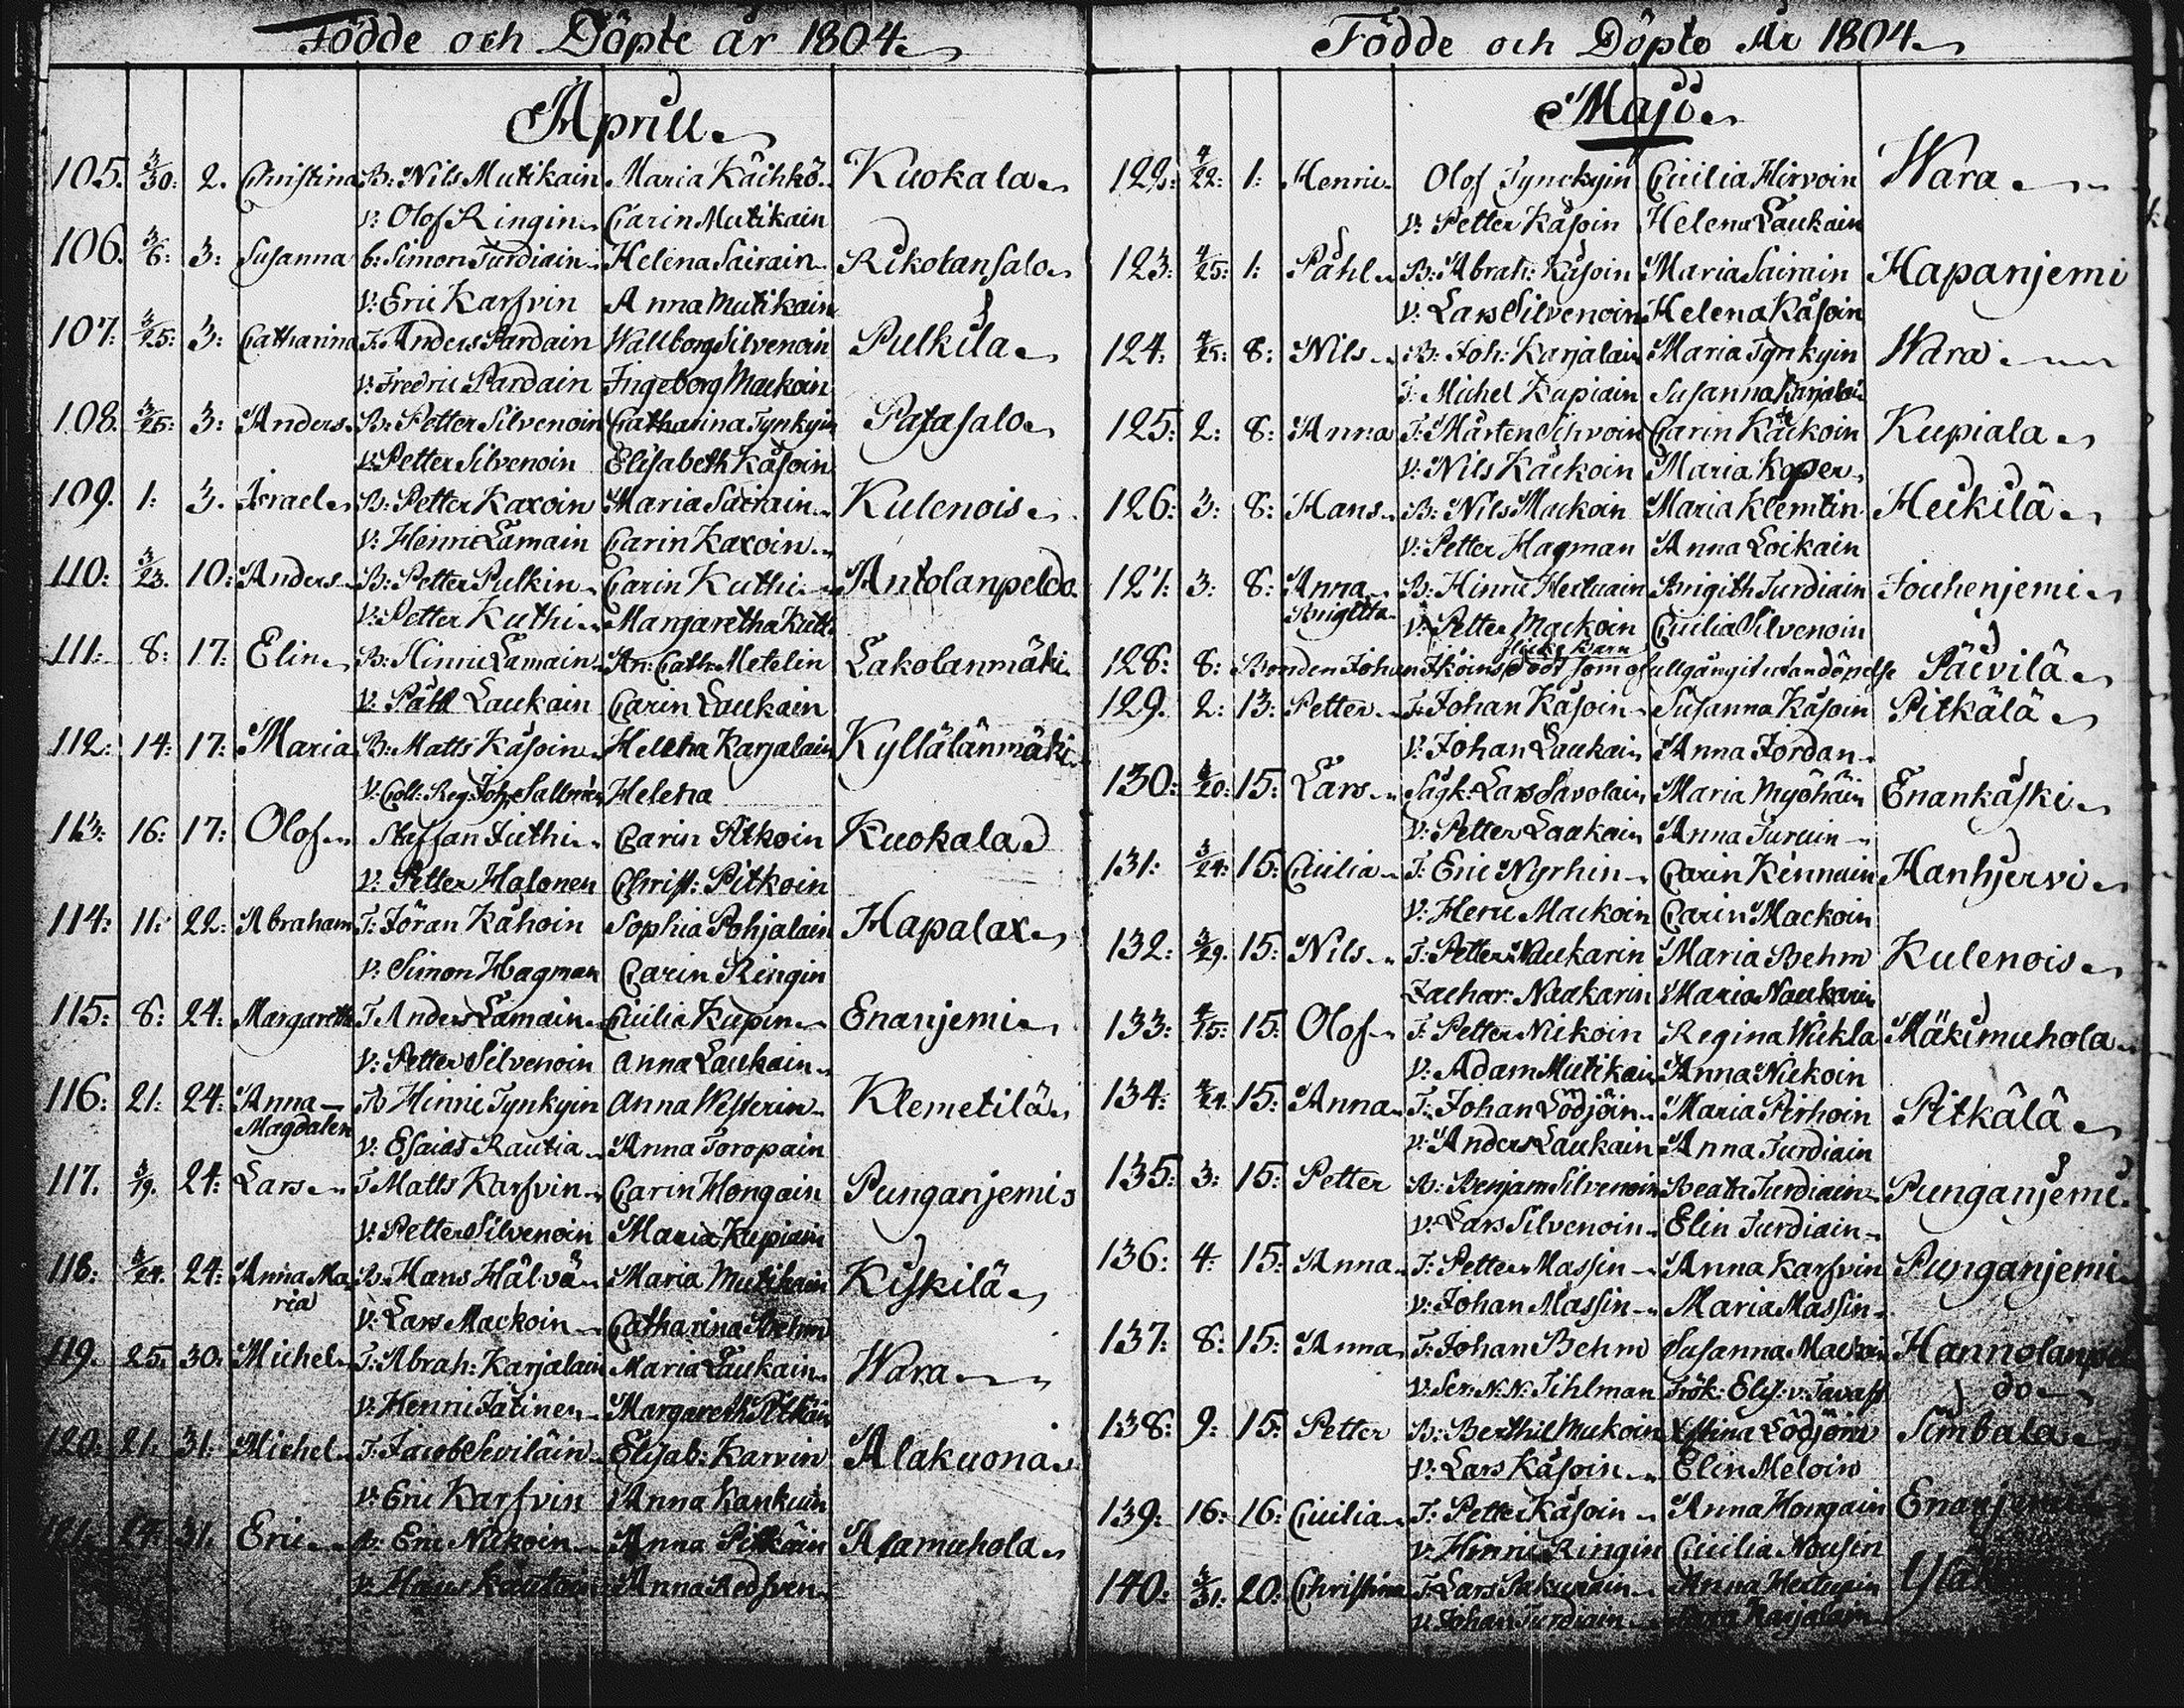 Födde och Döpte år 1804.
Aprill
105. 3/30: 2. Christina B: Nils Mutikain Maria Käihkö Kuokala
v: Olof Ringin Carin Mutikain
106. 3/6: 3: Susanna b: Simon Turdiain Helena Sairain Rikotansalo
v: Eric Karfvin Anna Mutikain
107. 3/25: 3: Catharina T: Anders Pardain Wallborg Silvenoin Pulkila
v: Fredric Pardain Ingeborg Mackoin
108. 3/25: 3: Anders B: Petter Silvenoin Catharina Tynkyin Patasalo
v: Petter Silvenoin Elisabeth Käsoin
109. 1: 3. Israel B: Petter Kaxoin Maria Sairain Kulenois
v: Henric Lamain Carin Kaxoin
110: 3/23. 10: Anders B: Petter Pulkin Carin Kuthi Antolanpeldo
v: Petter Kuthi Margaretha Kuthi
111: 8: 17: Elin B: Hinric Lamain An: Cath: Metelin Lakolanmäki
v: Påhl Laukain Carin Laukain
112: 14: 17: Maria B: Matts Käsoin Helena Karjalain Kyllälänmäki
v: Coll: Reg: Joh: Sallmén Helena
113: 16: 17: Olof Staffan Juthi Carin Pitkoin Kuokala
v: Petter Halonen Christ: Pitkoin
114: 11: 22: Abraham T: Jöran Kähoin Sophia Pohjalain Hapalax
v: Simon Hagman Carin Ringin
115: 8: 24: Margaretha T Anders Lamain Cicilia Kupin Enanjemi
v: Petter Silvenoin Anna Laukain
116: 21: 24: Anna Magdalen B Hinric Tynkyin Anna Westerin Klemetilä
v: Esaias Rautia Anna Toropain
117. 3/19. 24: Lars T Matts Karfvin Carin Hongain Punganjemi
v: Petter Silvenoin Maria Kupiain
118: 3/24. 24: Anna Maria B: Hans Hälvä Maria Mutikain Kiskilä
v: Lars Mackoin Catharina Behm
119. 25. 30. Michel T: Abrah: Karjalain Maria Laukain Wara
v: Henric Jätinen Margareth Pitkäin
120: 21: 31: Michel T: Jacob Seviläin Elisab: Karvin Alakuona
v: Eric Karfvin Anna Kankuin
121. 24: 31. Eric B: Eric Nickoin Anna Pitkäin Alamuhola
v: Hans Anna Redsven
Födde och Döpte År 1804
Maji
122: 4/22: 1: Henric Olof Tynckyin Cicilia Hirvoin Wara
v: Petter Käsoin Helena Laukain
123: 4/25: 1: Påhl B: Abrah: Käsoin Maria Sairain Hapanjemi
v: Lars Silvenoin Helena Käsoin
124: 4/25: 8: Nils B: Joh: Karjalain Maria Tynkyin Wara
T: Michel Kupiain Susanna Karjalai
125: 2: 8: Anna T: Mårten Sihvoin Carin Käckoin Kupiala
v: Nils Käckoin Maria Koper
126: 3: 8: Hans B: Nils Mackoin Maria Klemtin Heikilä
v: Petter Hagman Anna Loikain
127: 3: 8: Anna Brigitta B: Hinric Hertuain Brigith Turdiain Jouhenjemi
v: Petter Mackoin Cicilia Silvenoin
128: 8: Bonden Johan Itkoins flicke barn dödt som ofullgångit utan döpelse Päivilä
129. 2: 13: Petter T: Johan Käsoin Susanna Käsoin Pitkälä
v: Johan Laukain Anna Jordan
130: 3/20: 15: Lars Sågk: Lars Savolain Maria Myöhäin Enankåski
v: Petter Laukain Anna Turuin
131: 3/24: 15: Cicilia T: Eric Nyrhin Carin Kinnuin Hanhjervi
v: Henric Mackoin Carin Mackoin
132: 3/29. 15: Nils T: Petter Naukarin Maria Behm Kulenois
Zachar: Naukarin Maria Naukarin
133: 4/15: 15: Olof T: Petter Nikoin Regina Wikla Mäkimuhola
v: Adam Mutikain Anna Nickoin
134: 4/24 15: Anna T: Johan Lödjöin Maria Pirhoin Pitkälä
v: Anders Laukain Anna Turdiain
135: 3: 15: Petter B: Benjam Silvenoin Beata Turdiain Punganjemi
v: Lars Silvenoin Elin Turdiain
136: 4: 15: Anna T: Petter Massin Anna Karfvin Punganjemi
v: Johan Massin Maria Massin
137: 8: 15: Anna T: Johan Behm Susanna Mackoi Hannolanpeldo
v: Ser: N: N: Tihlman Frök: Elis: v: Tavast
138: 9: 15: Petter B: Berthil Mukoin Xstina Lödjöin Simbala
v: Lars Käsoin Elin Meloin
139: 16: 16: Cicilia T: Petter Käsoin Anna Hongain Enanjemi
v: Henric Ringin Cicilia Nousin
140: 3/31: 20: Christina T: Lars Pakurain Anna Hertuain
v: Johan Turdiain Anna Karjalain